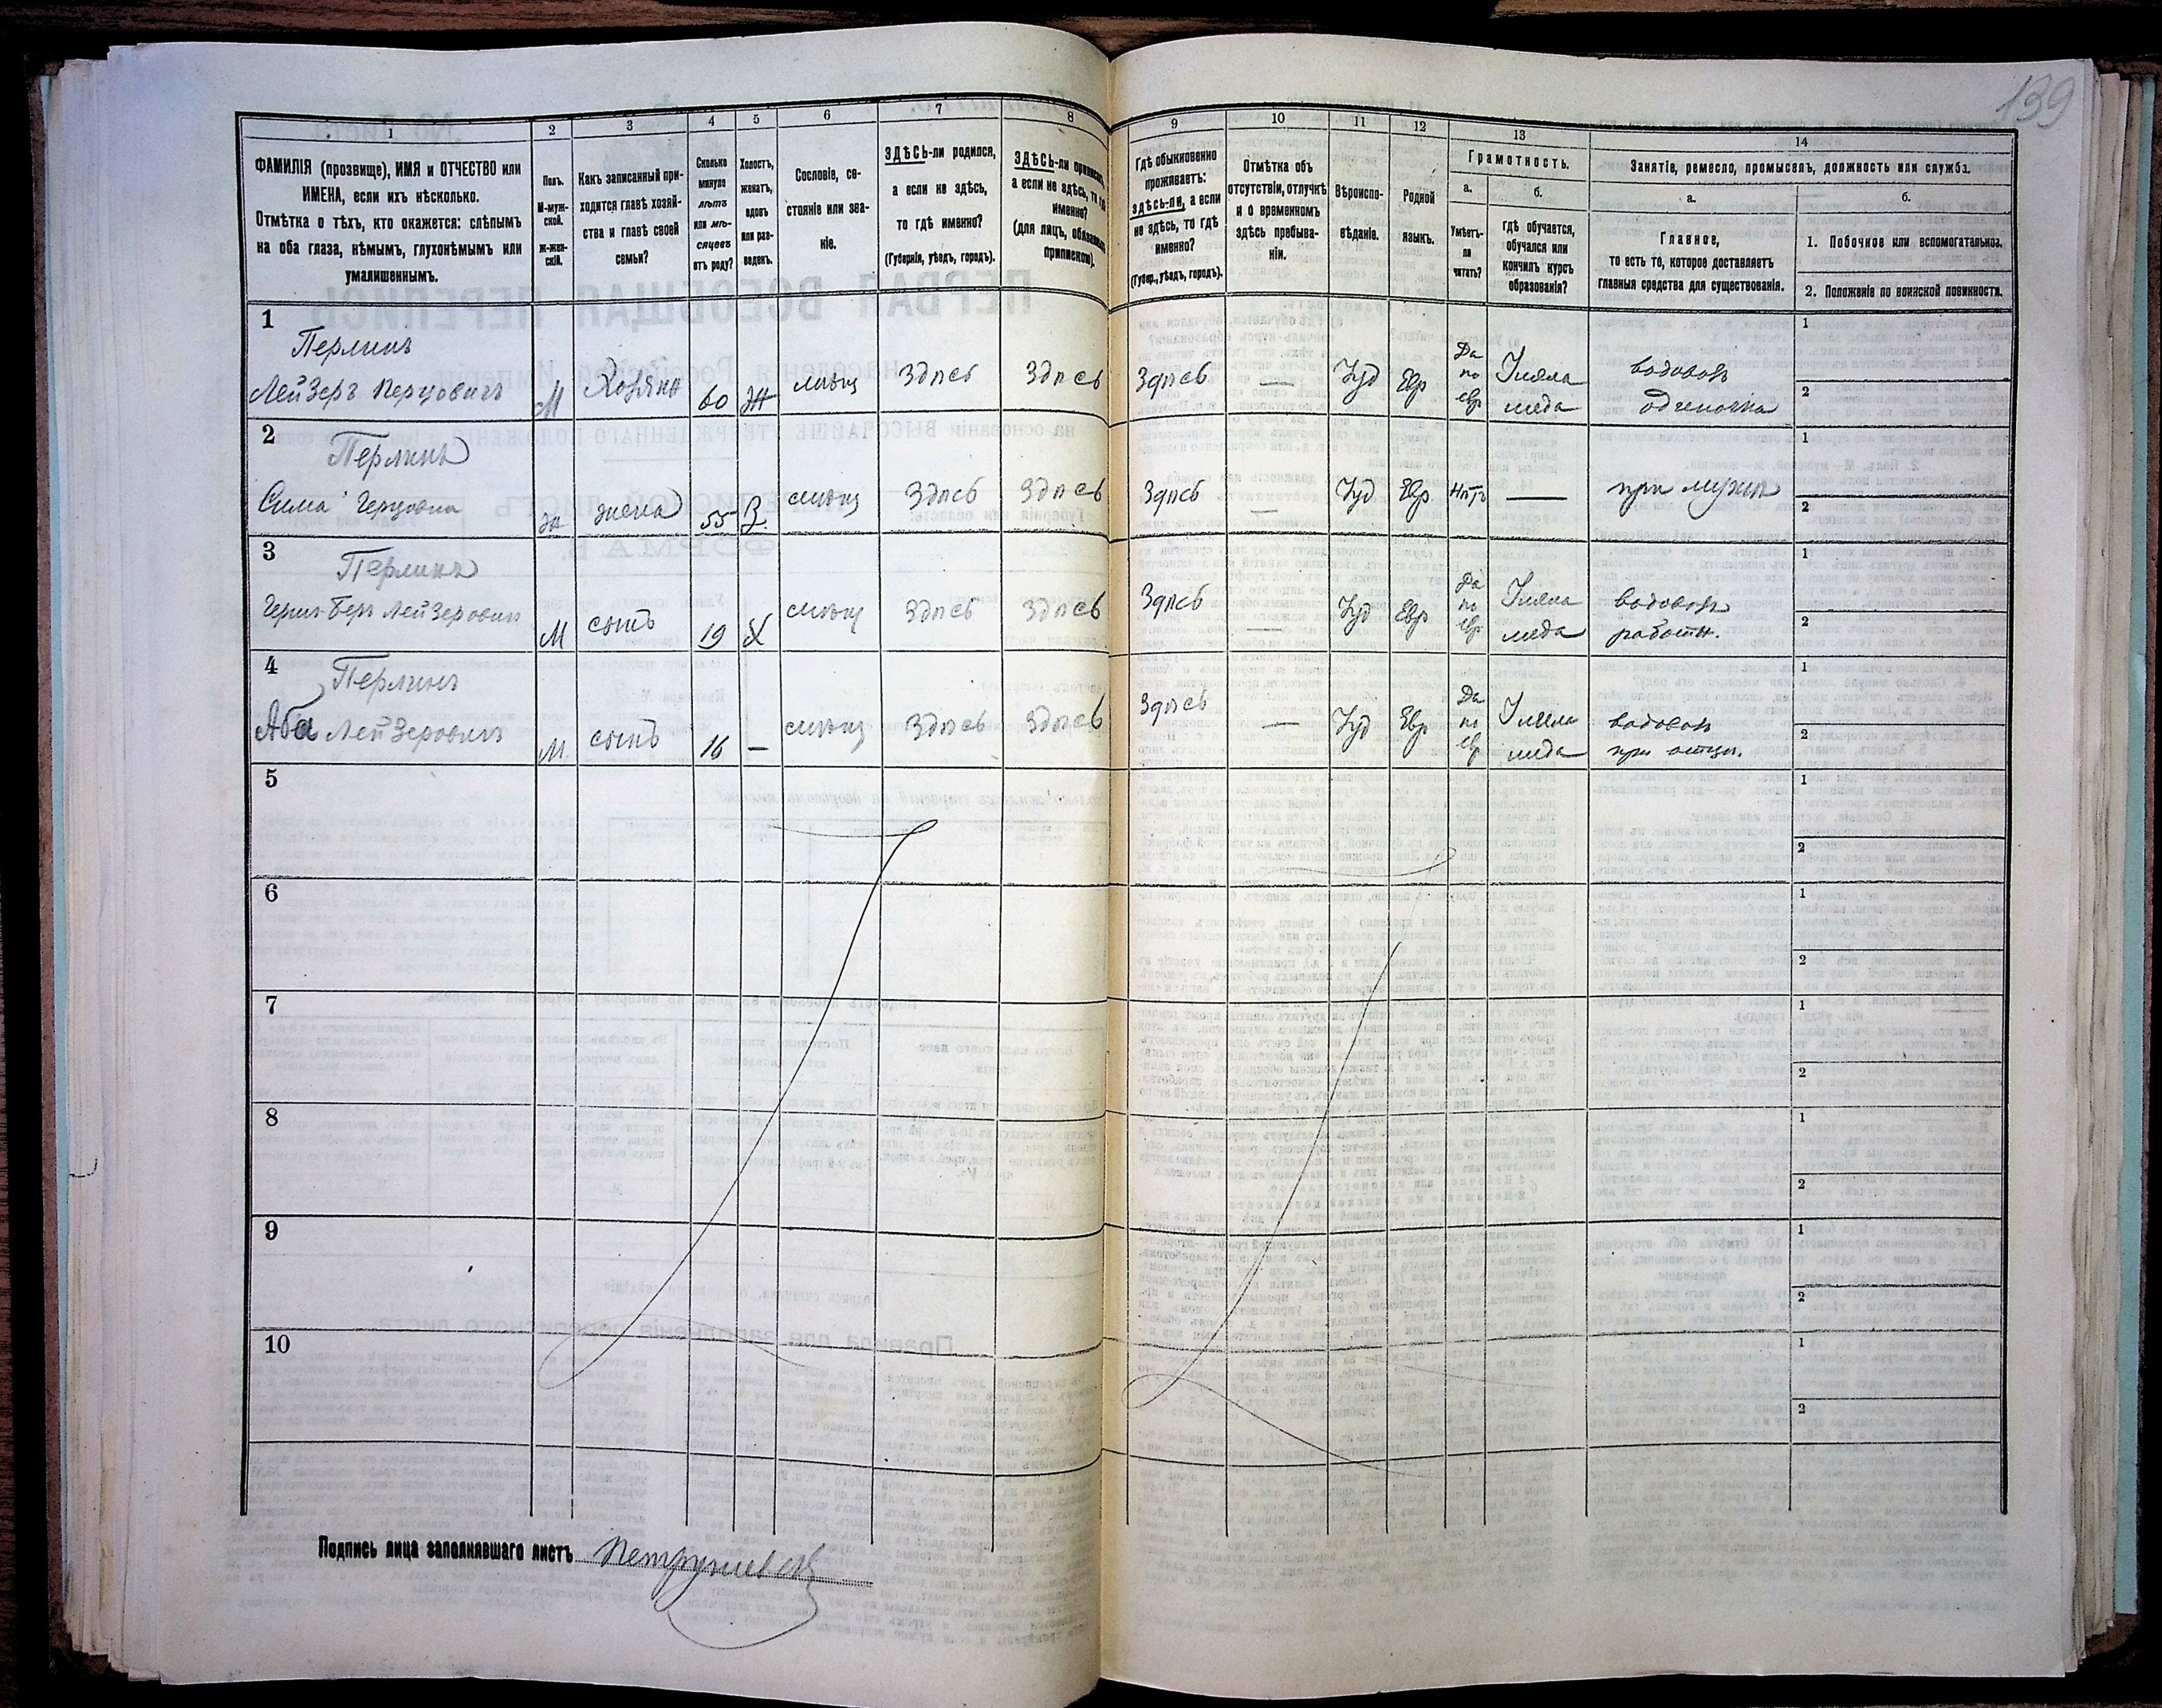 139
1
2
3
4
5
6
7
8
9
10
11
12
13
14
ФАМИЛІЯ (прозвище), ИМЯ и ОТЧЕСТВО или
ИМЕНА, если ихъ нѣсколько.
Отмѣтка о тѣхъ, кто окажется: слѣпымъ
на оба глаза, нѣмымъ, глухонѣмымъ или
умалишеннымъ.
Полъ.
М-муж-
ской.
Ж-жен-
скій.
Какъ записанный при-
ходится главѣ хозяй-
ства и главѣ своей
семьи?
Сколько
минуло
лѣтъ
или мѣ-
сяцевъ
отъ роду?
Холостъ,
женатъ,
вдовъ
или раз-
веденъ.
Сословіе, со-
стояніе или зва-
ніе.
ЗДѢСЬ-ли родился,
а если не здѣсь,
то гдѣ именно?
(Губернія, уѣздъ, городъ).
ЗДѢСЬ-ли приписанъ,
а если не здѣсь, то гдѣ
именно?
(для лицъ, обязанныхъ
припискою).
Гдѣ обыкновенно
проживаетъ:
здѣсь-ли, а если
не здѣсь, то гдѣ
именно?
(Губер., уѣздъ, городъ).
Отмѣтка объ
отсутствіи, отлучкѣ
и о временномъ
здѣсь пребыва-
ніи.
Вѣроиспо-
вѣданіе.
Родной
языкъ.
Грамотность.
а.
Умѣетъ-
ли
читать?
б.
гдѣ обучается,
обучался или
кончилъ курсъ
образованія?
Занятіе, ремесло, промыселъ, должность или служба.
а.
Главное,
то есть то, которое доставляетъ
главныя средства для существованія.
б.
1. Побочное или вспомогательное.
2. Положеніе по воинской повинности.
1
Перлинъ
Лейзеръ Перцовичъ М Хозяинъ 60 Ж мѣщ Здѣсь Здѣсь Здѣсь — Іуд Евр Да по евр
водовозъ
одиночка
1
2
2
Перлинъ
Сима Герцовна ж жена 55 З. мѣщ Здѣсь Здѣсь Здѣсь — Іуд Евр Нѣтъ — при мужѣ
1
2
3
Перлинъ
Лейзеровичъ М сынъ 19 Х мѣщ Здѣсь Здѣсь Здѣсь — Іуд Евр Да по евр
водовозъ
работн.
1
2
4
Перлинъ
Аба Лейзеровичъ М сынъ 16 — мѣщ Здѣсь Здѣсь Здѣсь — Іуд Евр Да по евр
водовозъ
при отцѣ.
1
2
5
1
2
6
1
2
7
1
2
8
1
2
9
1
2
10
1
2
Подпись лица заполнявшаго листъ